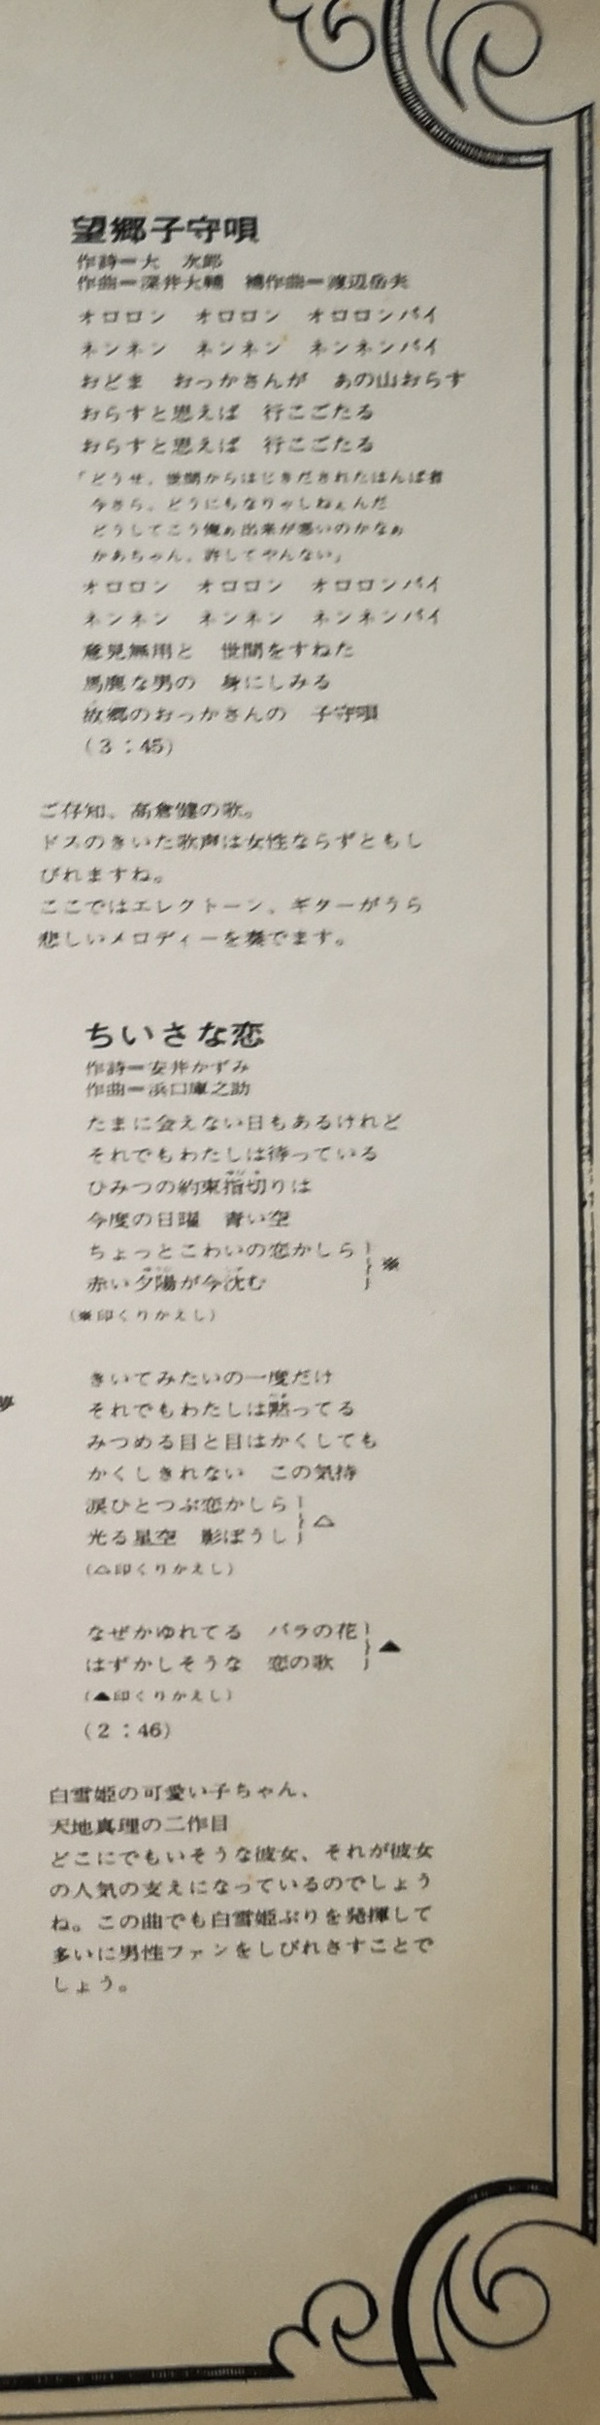 望郷子守唄
作詩ー大　次郎
作曲ー深井大輔　補作曲ー渡辺岳夫
オロロン　オロロン　オロロンバイ
ネンネン　ネンネン　ネンネンバイ
おどま　おっかさんが　あの山おらす
おらすと思えば　行こごたる
おらすと思えば　行こごたる
「どうせ、世間からはじきだされたはんぱ者
今さら、どうにもなりゃしねぇんだ
どうしてこう俺ぁ出来が悪いのかなぁ
かあちゃん、許してやんない」
オロロン　オロロン　オロロンバイ
ネンネン　ネンネン　ネンネンバイ
意見無用と　世間をすねた
馬鹿な男の　身にしみる
故郷のおっかさんの　子守唄
（3：45）
ご存知、高倉健の歌。
ドスのきいた歌声は女性ならずともし
びれますね。
ここではエレクトーン、ギターがうら
悲しいメロディーを奏でます。
ちいさな恋
作詩ー安井かずみ
作曲ー浜口庫之助
たまに会えない日もあるけれど
それでもわたしは待っている
ひみつの約束指切りは
今度の日曜　青い空
ちょっとこわいの恋かしら
赤い夕陽が今沈む
※
（※印くりかえし）
きいてみたいの一度だけ
それでもわたしは黙ってる
みつめる目と目はかくしても
かくしきれない　この気持
涙ひとつぶ恋かしら
光る星空　影ぼうし
△
（△印くりかえし）
なぜかゆれてる　バラの花
はずかしそうな　恋の歌
▲
（▲印くりかえし）
（2：46）
白雪姫の可愛い子ちゃん、
天地真理の二作目
どこにでもいそうな彼女、それが彼女
の人気の支えになっているのでしょう
ね。この曲でも白雪姫ぶりを発揮して
多いに男性ファンをしびれさすことで
しょう。